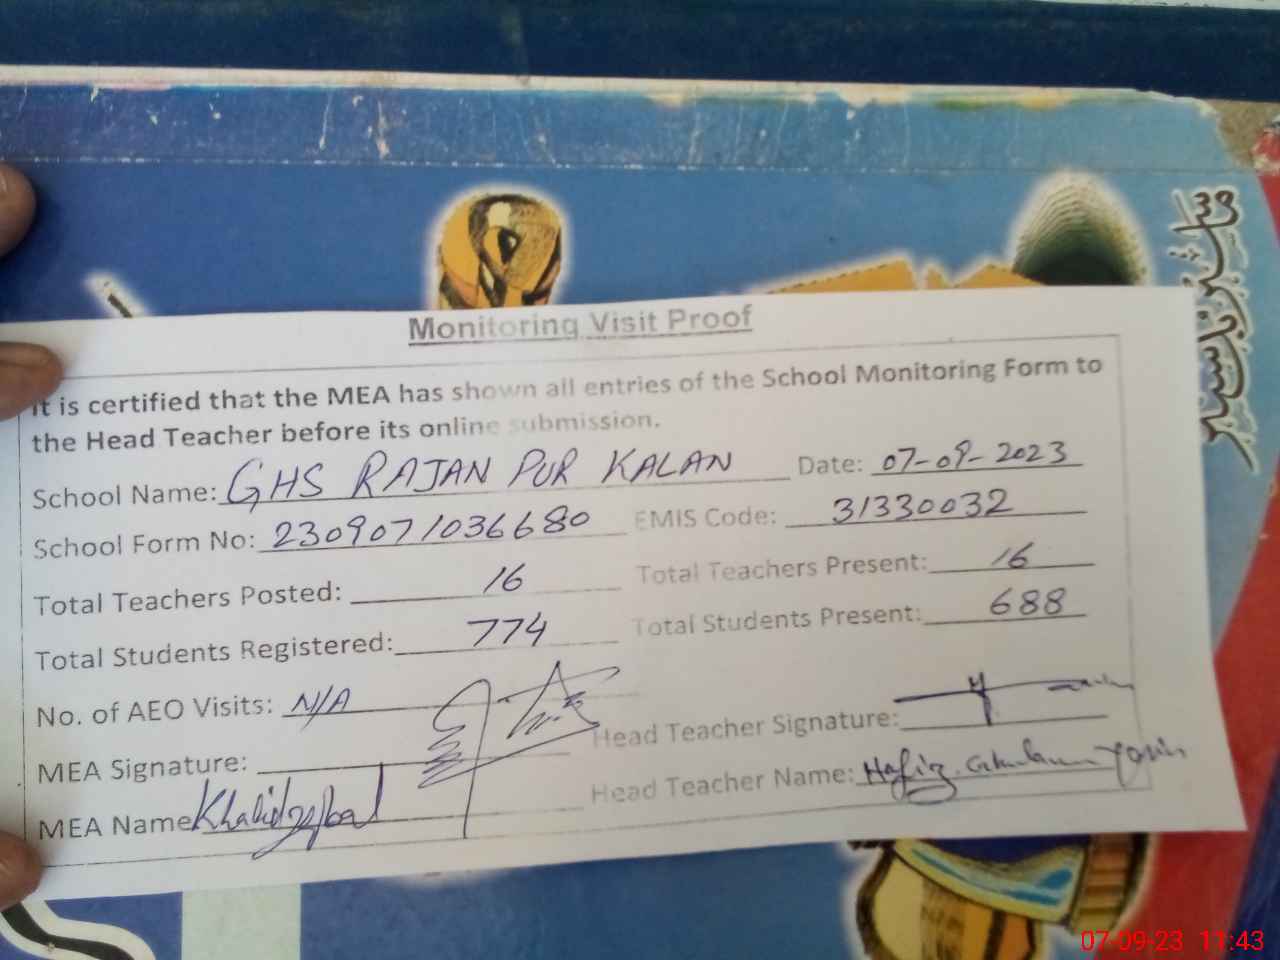 Monitoring Visit Proof
It is certified that the MEA has shown all entries of the School Monitoring Form to
the Head Teacher before its online submission.
School Name: GHS RAJAN PUR KALAN Date: 07-09-2023
School Form No: 2309071036680 EMIS Code: 31330032
Total Teachers Posted: 16 Total Teachers Present: 16
Total Students Registered: 774 Total Students Present: 688
No. of AEO Visits: N/A
MEA Signature: Head Teacher Signature:
MEA Name Khalid Iqbal Head Teacher Name: Hafiz
07-09-23 11:43